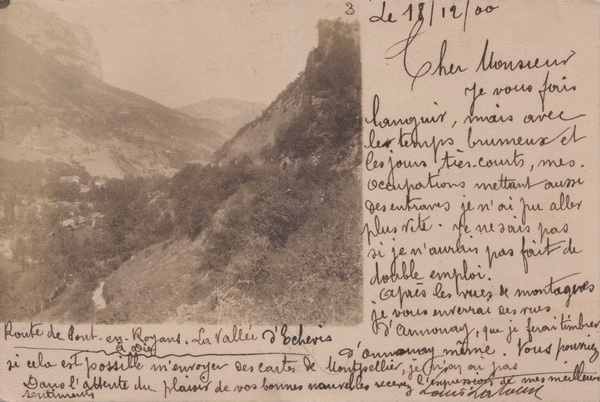 3
Le 18/12/00
Cher Monsieur
Je vous fais
languir, mais avec
les temps brumeux et
les jours très-courts, mes
occupations mettant aussi
des entraves je n'ai pu aller
plus vite. Je ne sais pas
si je n'aurais pas fait de
double emploi.
Après les vues de montagnes
je vous enverrai des vues
d'Annonay, que je ferai timbrer
d'annonay même. Vous pourriez
Route de Pont-en-Royans. La Vallée d'Echevis
à Die
si cela est possible m'envoyer des cartes de Montpellier, je n'en ai pas
Dans l'attente du plaisir de vos bonnes nouvelles recevez l'expression de mes meilleurs
sentiments Louis